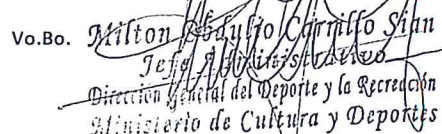 Vo.Bo. Milton Abdulio Carrillo Sian
Jefe Administrativo
Dirección General del Deporte y la Recreación
Ministerio de Cultura y Deportes